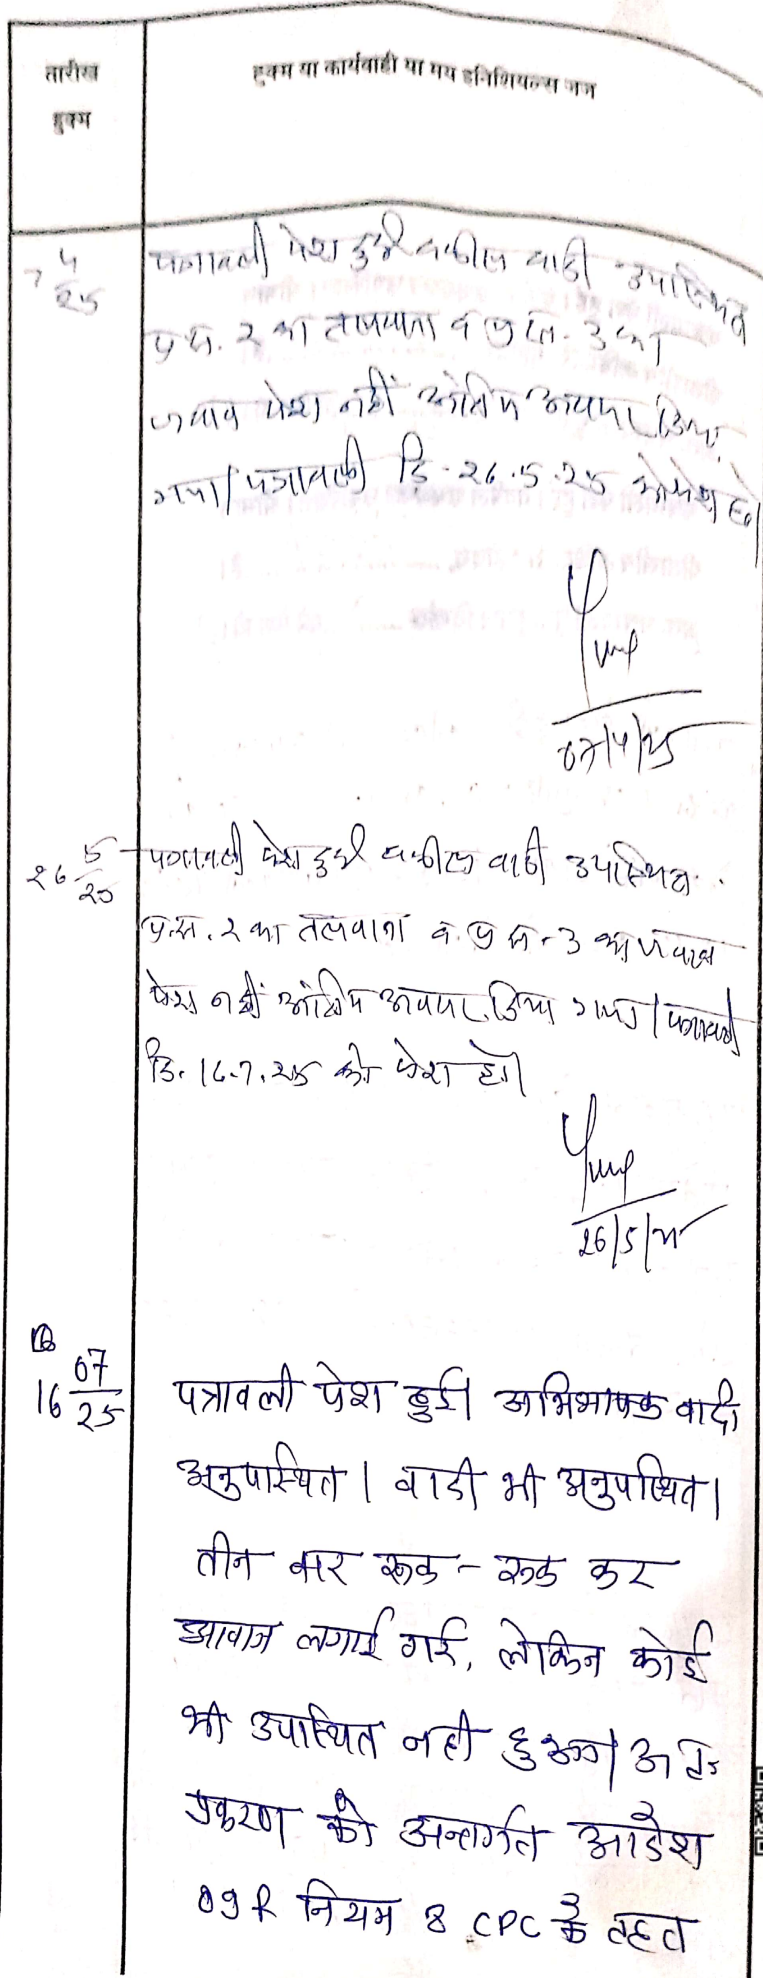 तारीख
हुक्म
हुक्म या कार्यवाही या मय इनिशियल्स जज
7 4/25
पत्रावली पेश हुई वकील वादी उपस्थित
प्र.सं. 2 का तलवाना व प्र.सं. 3 का
जवाब पेश नहीं अंतिम अवसर दिया
गया। पत्रावली दि. 26.5.25 को पेश हो।
07/4/25
26 5/25
पत्रावली पेश हुई वकील वादी उपस्थित
प्र.सं. 2 का तलवाना व प्र.सं. 3 का जवाब
पेश नहीं अंतिम अवसर दिया गया। पत्रावली
दि. 16.7.25 को पेश हो।
26/5/25
16 07/25
पत्रावली पेश हुई। अभिभाषक वादी
अनुपस्थित। वादी भी अनुपस्थित।
तीन बार रूक-रूक कर
आवाज लगाई गई, लेकिन कोई
भी उपास्थित नही हुआ। अतः
प्रकरण को अन्तर्गत आदेश
09 R नियम 8 CPC के तहत